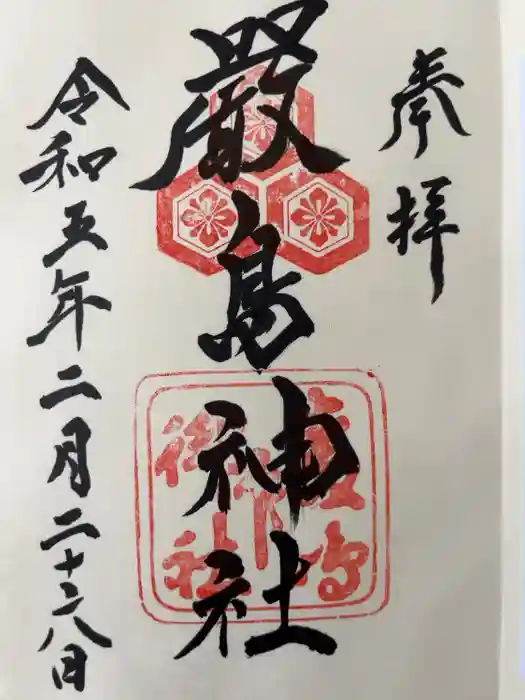 奉拝
厳島神社
令和五年二月二十八日